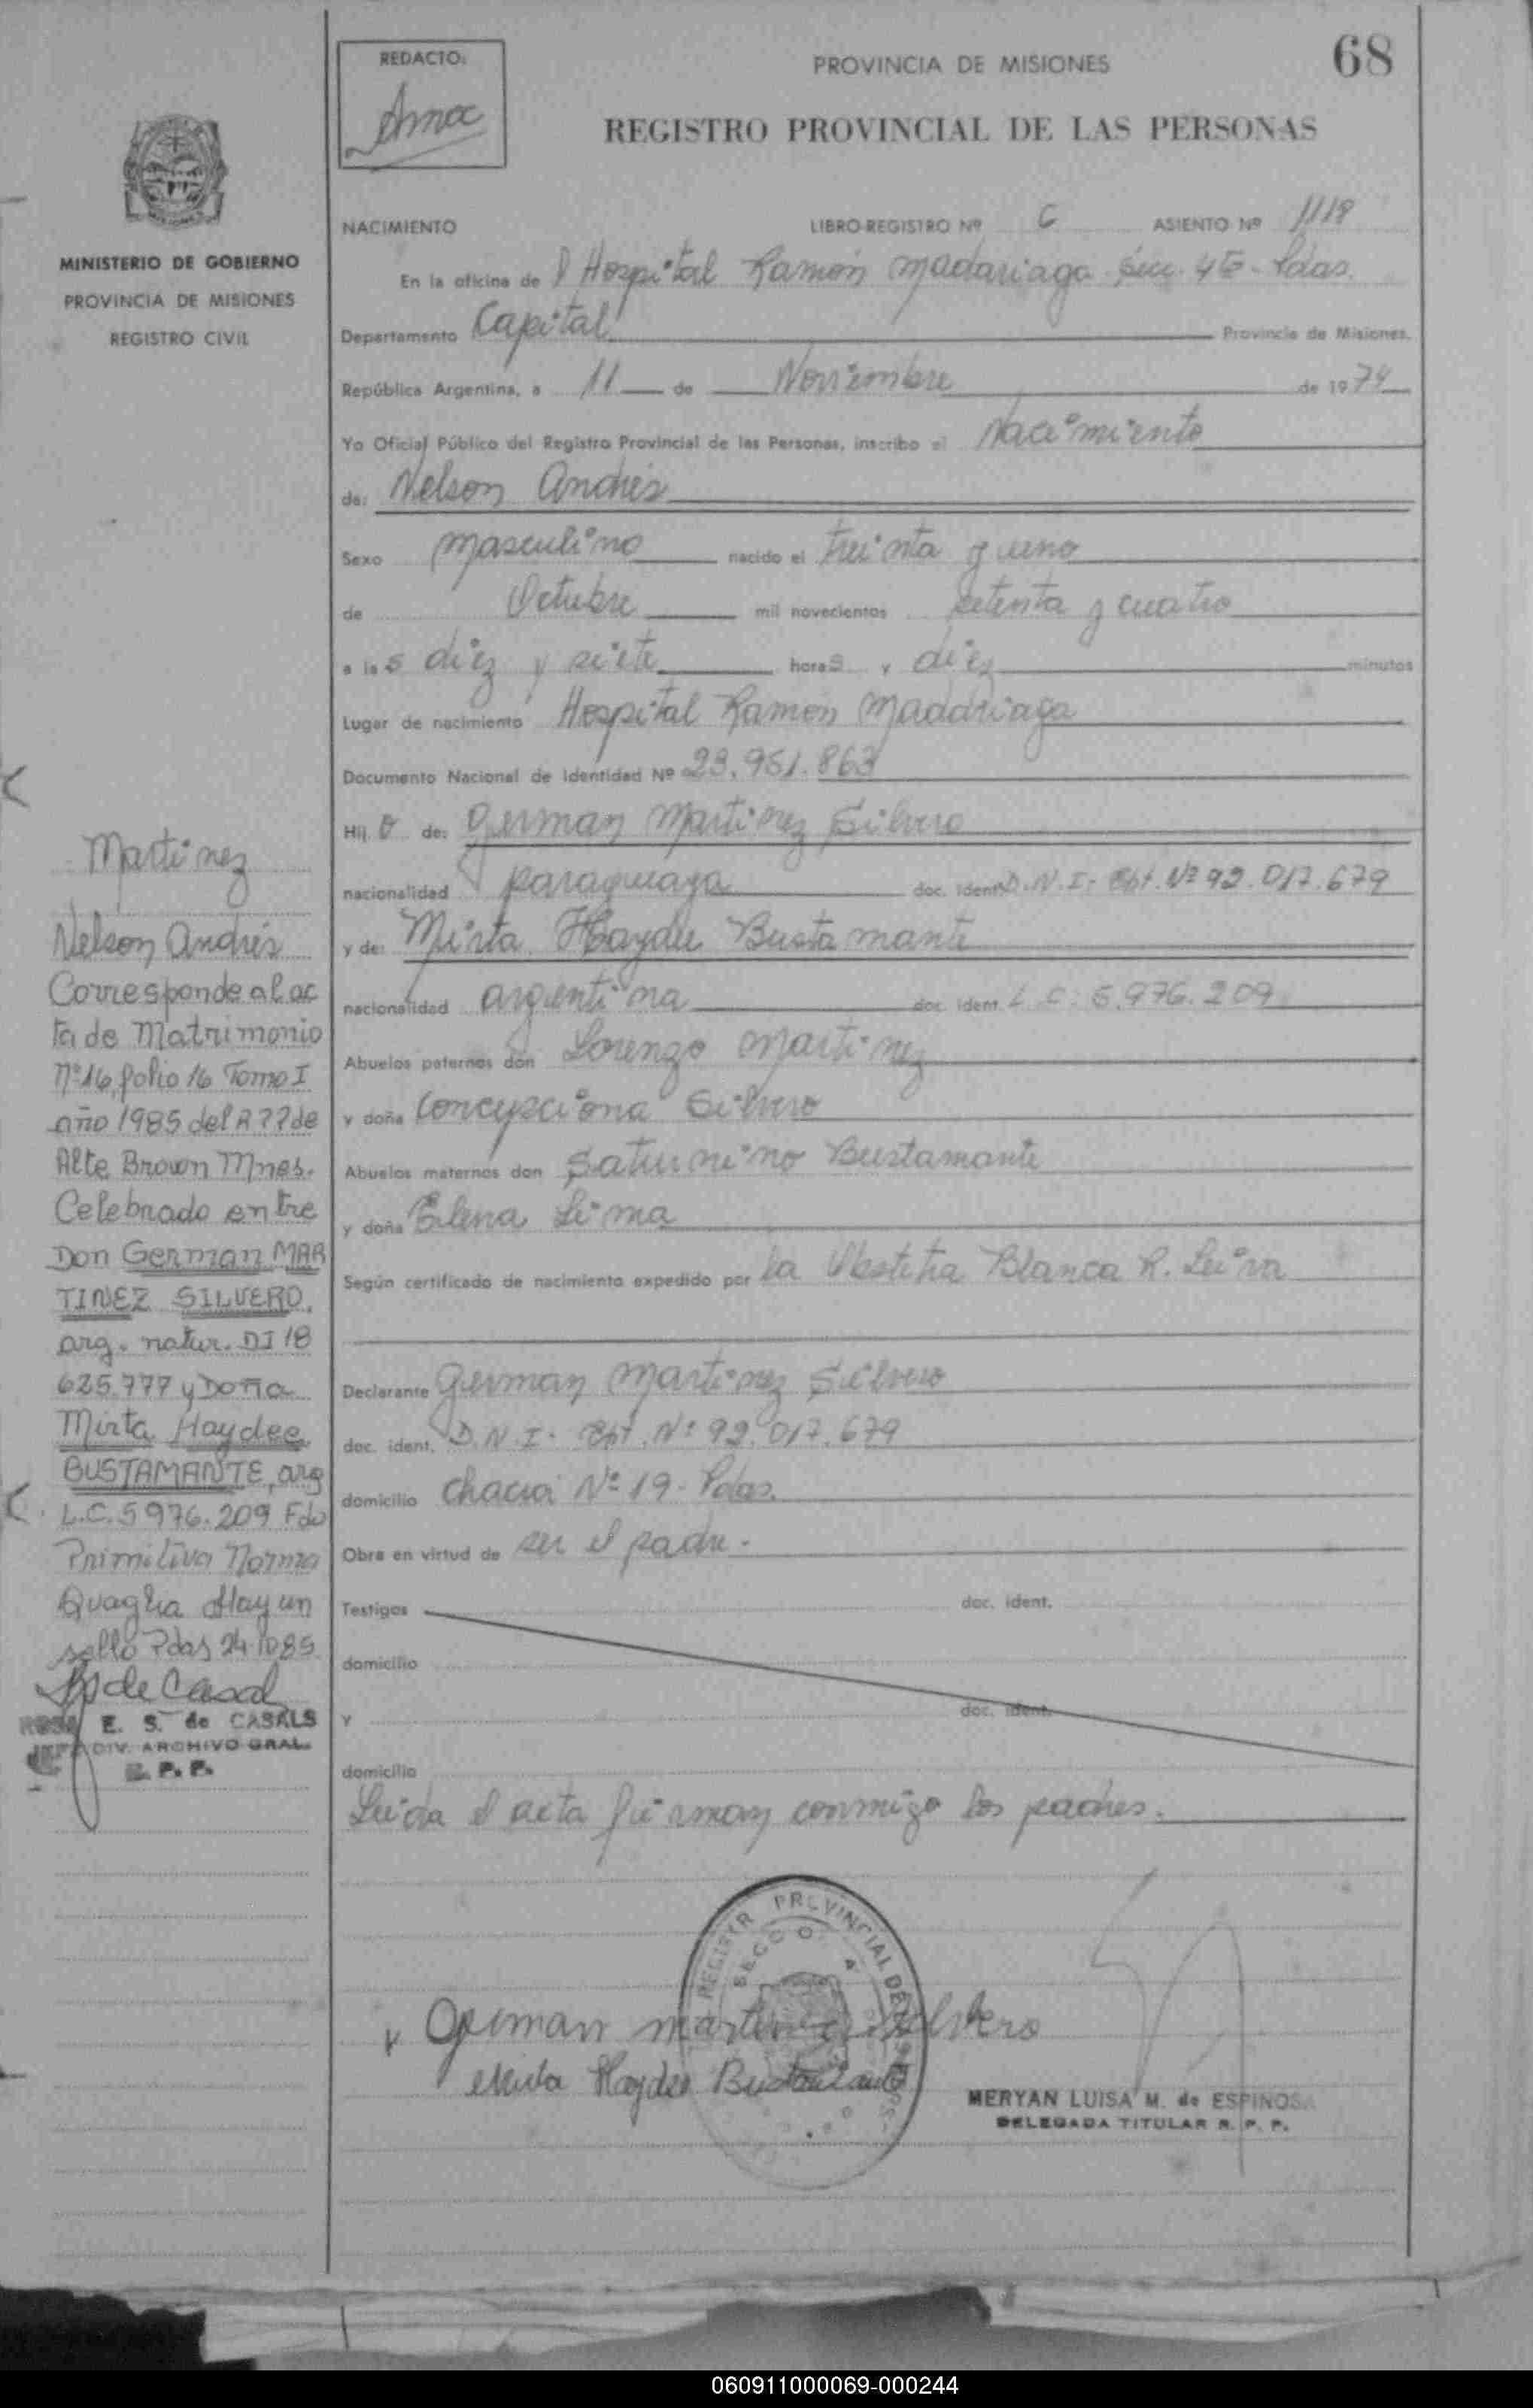 68
REDACTO:
PROVINCIA DE MISIONES
REGISTRO PROVINCIAL DE LAS PERSONAS
MINISTERIO DE GOBIERNO
PROVINCIA DE MISIONES
REGISTRO CIVIL
NACIMIENTO LIBRO-REGISTRO Nº 6 ASIENTO Nº 1118
En la oficina de l Hospital Ramón Madariaga Secc. 4ta - Pdas.
Departamento Capital Provincia de Misiones.
República Argentina, a 11 de Noviembre de 1974
Yo Oficial Público del Registro Provincial de las Personas, inscribo el Nacimiento
de: Nelson Andrés
Sexo masculino nacido el treinta y uno
de Octubre mil novecientos setenta y cuatro
a las diez y siete horas y diez minutos
Lugar de nacimiento Hospital Ramón Madariaga
Documento Nacional de Identidad Nº 23.951.863
Hij o de: German Martinez Silvero
nacionalidad paraguaya doc. ident. D.N.I. Ext. Nº 92.017.679
y de: Mirta Haydee Bustamante
nacionalidad argentina doc. ident. L.C. 5.976.209
Abuelos paternos don Lorenzo Martinez
y doña Concepciona Silvero
Abuelos maternos don Saturnino Bustamante
y doña Elena Lima
Según certificado de nacimiento expedido por la Obstetra Blanca R. Leiva
Declarante German Martinez Silvero
doc. ident. D.N.I. Ext. Nº 92.017.679
domicilio Chacra Nº 19 - Pdas.
Obra en virtud de ser el padre.
Testigos doc. ident.
domicilio
Y doc. ident.
domicilio
Leida el acta firman conmigo los padres.
German Martinez Silvero
Mirta Haydee Bustamante
MERYAN LUISA M. de ESPINOSA
DELEGADA TITULAR R. P. P.
Martinez
Nelson Andrés
Corresponde al ac
ta de Matrimonio
Nº 16, folio 16 Tomo I
año 1985 del R P P de
Alte Brown Mnes.
Celebrado entre
Don German MAR
TINEZ SILVERO,
arg. natur. DI 18
625.777 y Doña
Mirta Haydee
BUSTAMANTE, arg
L.C. 5976.209 Fdo
Primitiva Norma
Quaglia Hay un
sello Pdas 24.10.85
S de Casal
ROSA E. S. de CASALS
JEFA DIV. ARCHIVO GRAL.
R. P. P.
060911000069-000244